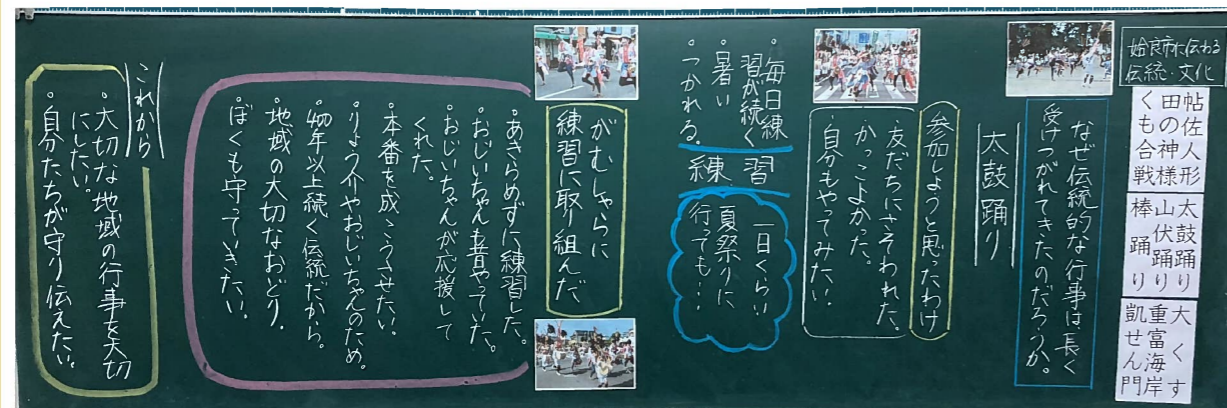 姶良市に伝わる
伝統・文化
帖佐人形
田の神様
くも合戦
太鼓踊り
山伏踊り
棒踊り
大くす
重富海岸
凱せん門
なぜ伝統的な行事は、長く
受けつがれてきたのだろうか。
太鼓踊り
参加しようと思ったわけ
友だちにさそわれた。
かっこよかった。
自分もやってみたい。
・毎日練
習が続く
・暑い
・つかれる。
練習
一日くらい
夏祭りに
行っても…
がむしゃらに
練習に取り組んだ
・あきらめずに練習した。
・おじいちゃんも昔やっていた。
・おじいちゃんが応援して
くれた。
・本番を成こうさせたい。
・りょう介やおじいちゃんのため。
・400年以上続く伝統だから。
・地域の大切なおどり。
・ぼくも守っていきたい。
これから
・大切な地域の行事を大切
にしたい。
・自分たちが守り伝えたい。